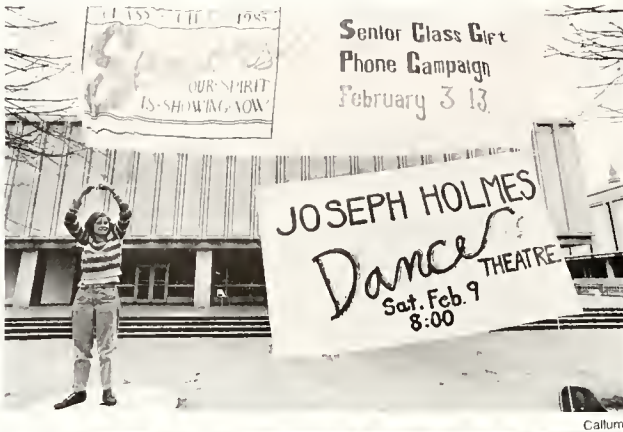 CLASS GIFT 1985
OUR·SPIRIT
IS·SHOWING·NOW
Senior Class Gift
Phone Campaign
February 3 13
JOSEPH HOLMES
Dance
THEATRE
Sat. Feb. 9
8:00
Callum